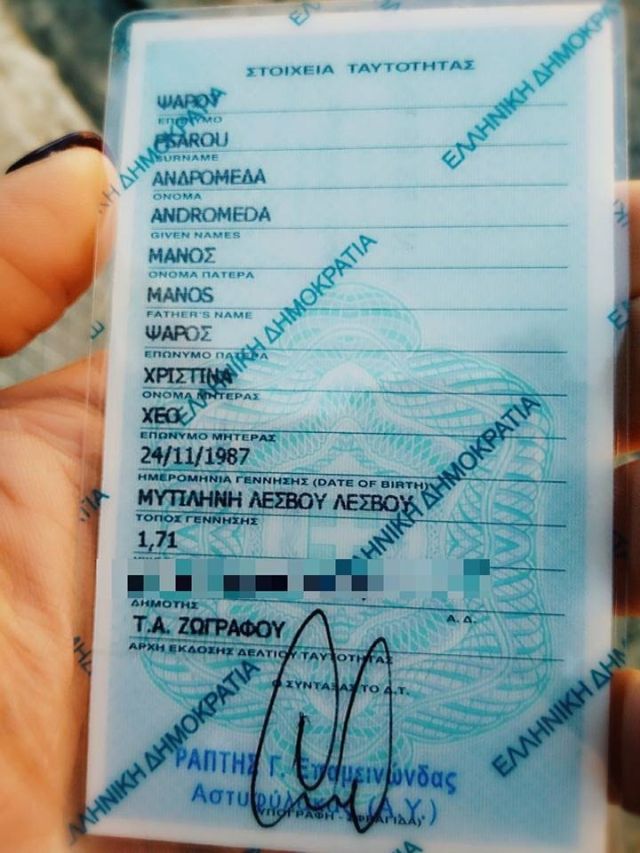 ΣΤΟΙΧΕΙΑ ΤΑΥΤΟΤΗΤΑΣ
ΨΑΡΟΥ
ΕΠΩΝΥΜΟ
PSAROU
SURNAME
ΑΝΔΡΟΜΕΔΑ
ΟΝΟΜΑ
ANDROMEDA
GIVEN NAMES
ΜΑΝΟΣ
ΟΝΟΜΑ ΠΑΤΕΡΑ
MANOS
FATHER'S NAME
ΨΑΡΟΣ
ΕΠΩΝΥΜΟ ΠΑΤΕΡΑ
ΧΡΙΣΤΙΝΑ
ΟΝΟΜΑ ΜΗΤΕΡΑΣ
ΧΕΟ
ΕΠΩΝΥΜΟ ΜΗΤΕΡΑΣ
24/11/1987
ΗΜΕΡΟΜΗΝΙΑ ΓΕΝΝΗΣΗΣ (DATE OF BIRTH)
ΜΥΤΙΛΗΝΗ ΛΕΣΒΟΥ ΛΕΣΒΟΥ
ΤΟΠΟΣ ΓΕΝΝΗΣΗΣ
1,71
ΔΗΜΟΤΗΣ Α.Δ.
Τ.Α. ΖΩΓΡΑΦΟΥ
ΑΡΧΗ ΕΚΔΟΣΗΣ ΔΕΛΤΙΟΥ ΤΑΥΤΟΤΗΤΑΣ
Ο ΣΥΝΤΑΞΑΣ ΤΟ Δ.Τ.
ΡΑΠΤΗΣ Γ. Επαμεινώνδας
(Α.Υ.)
ΥΠΟΓΡΑΦΗ - ΣΦΡΑΓΙΔΑ)
ΕΛΛΗΝΙΚΗ ΔΗΜΟΚΡΑΤΙΑ
ΕΛΛΗΝΙΚΗ ΔΗΜΟΚΡΑΤΙΑ
ΕΛΛΗΝΙΚΗ ΔΗΜΟΚΡΑΤΙΑ
ΕΛΛΗΝΙΚΗ ΔΗΜΟΚΡΑΤΙΑ